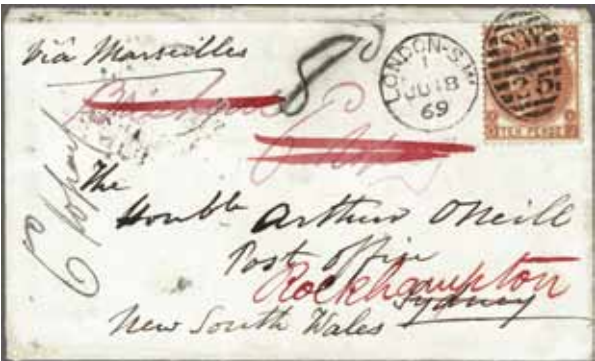 Via Marseilles
8
LONDON-S.W.
1
JU 18
69
S.W.
25
TEN PENCE
The
Honble Arthur ONeill
Post Office
Rockhampton
Sydney
New South Wales